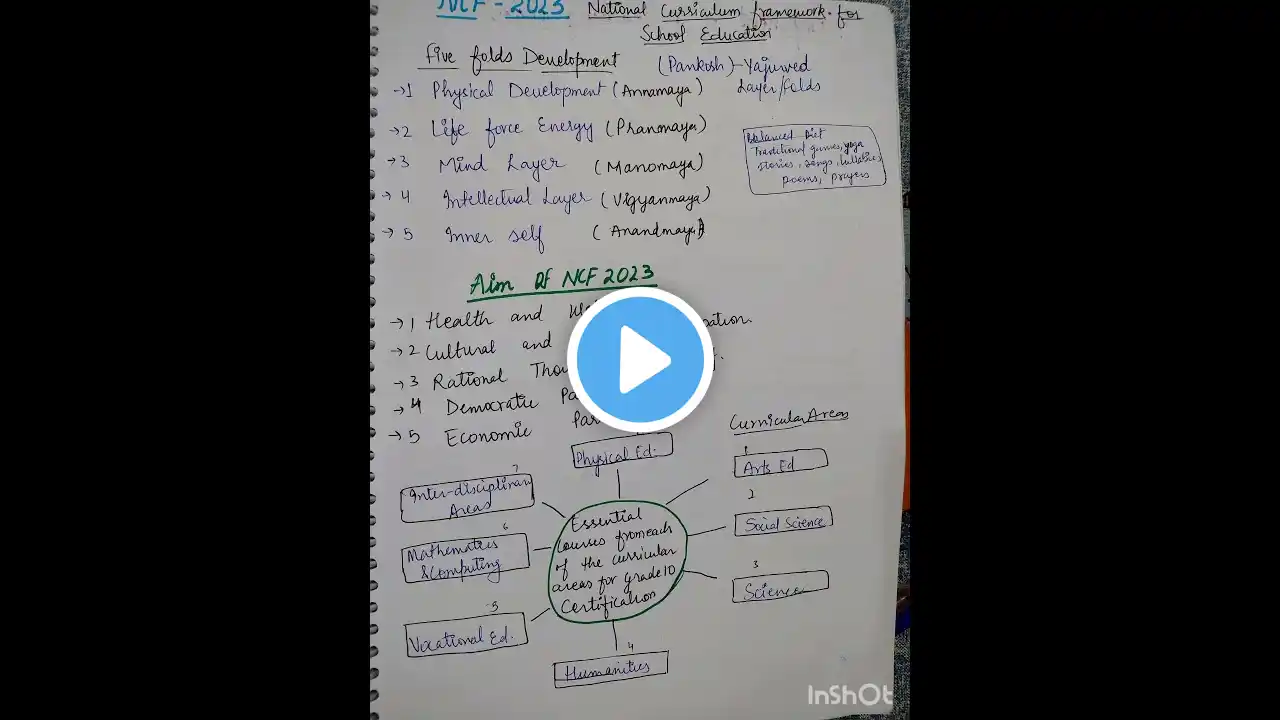 NCF - 2023 National Curriculum framework for
School Education
Five folds Development (Pankosh) - Yajurved
Layer/folds
→1 Physical Development (Annamaya)
→2 Life force Energy (Pranmaya)
→3 Mind Layer (Manomaya)
→4 Intellectual Layer (Vigyanmaya)
→5 Inner self (Anandmaya)
Balanced Diet
Traditional games, yoga
stories, songs, lullabies
poems, prayers
Aim of NCF 2023
→1 Health and
→2 Cultural and
→3 Rational
→4 Democratic
→5 Economic
Curricular Areas
Physical Ed.
1
Arts Ed
2
Social Science
3
Science
4
Humanities
5
Vocational Ed.
6
Mathematics
& Computing
7
Inter-disciplinary
Areas
Essential
courses from each
of the curricular
areas for grade 10
Certification
InShOt